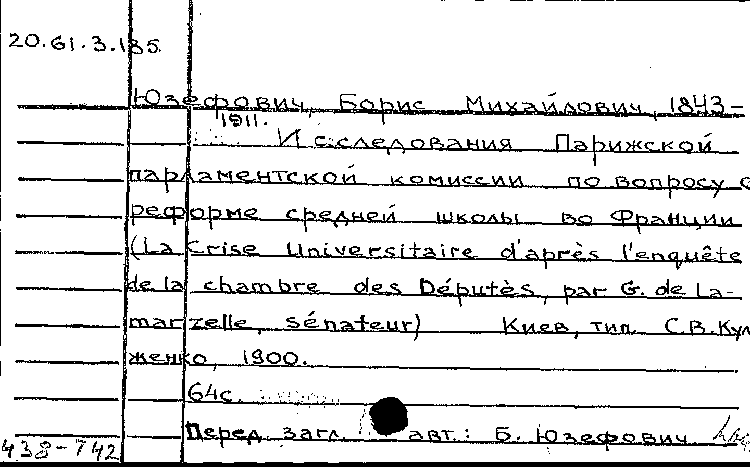 20.61.3.135.
Юзефович, Борис Михайлович, 1843-
1911.
Исследования Парижской
парламентской комиссии по вопросу о
реформе средней школы во Франции
(La Crise Universitaire d'après l'enquête
de la chambre des Députès, par G. de La-
marzelle, sénateur) Киев, тип. С.В. Куль
женко, 1900.
64с.
Перед загл. авт.: Б. Юзефович.
438-742